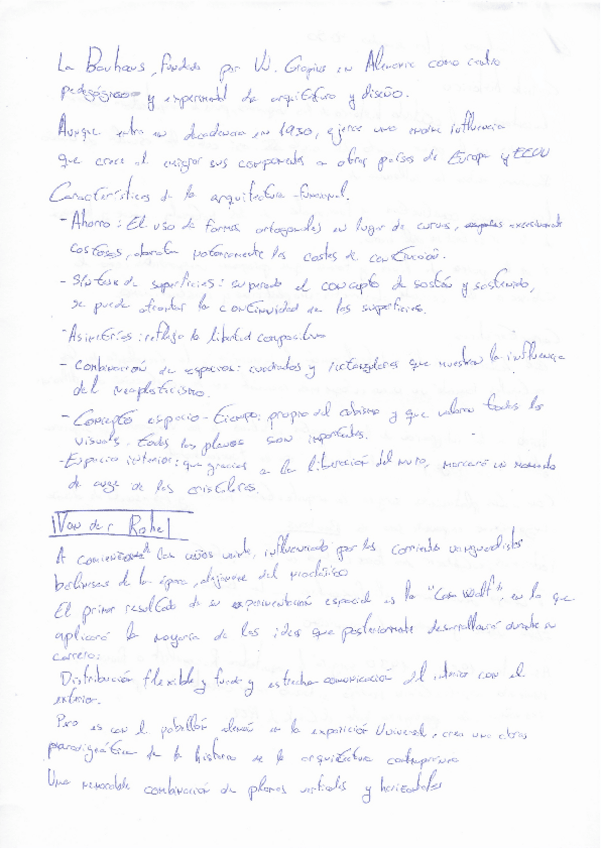 La Bauhaus, fundada por W. Gropius en Alemania como centro
pedagógico y experimental de arquitectura y diseño.
Aunque entra en decadencia en 1930, ejerce una enorme influencia
que crece al emigrar sus componentes a otros países de Europa y EEUU
Características de la arquitectura funcional.
- Ahorro: El uso de formas ortogonales en lugar de curvas, excesivamente
costosas, abarata notoriamente los costes de construcción.
- Síntesis de superficies: superado el concepto de sostén y sostenido,
se puede afrontar la continuidad en las superficies.
- Asimetrías: reflejo la libertad compositiva
- Combinación de espacios: cuadrados y rectangulares que muestran la influencia
del neoplasticismo.
- Concepto espacio-tiempo: propio del cubismo y que valora todas las
visuals. todos los planos son importantes.
- Espacio interior: que gracias a la liberación del muro, marcará un momento
de auge de las cristaleras.
Van der Rohe
A comienzos de los años veinte, influenciado por las corrientes vanguardistas
berlinesas de la época, alejarse del neoclásico
El primer resultado de su experimentación espacial es la "Casa Wolf", en la que
aplicará la mayoría de las ideas que posteriormente desarrollará durante su
carrera:
Distribución flexible y fluida y estrecha comunicación del interior con el
exterior.
Pero es con el pabellón alemán en la exposición Universal, crea una obra
paradigmática de la historia de la arquitectura contemporánea
Una memorable combinación de planos verticales y horizontales